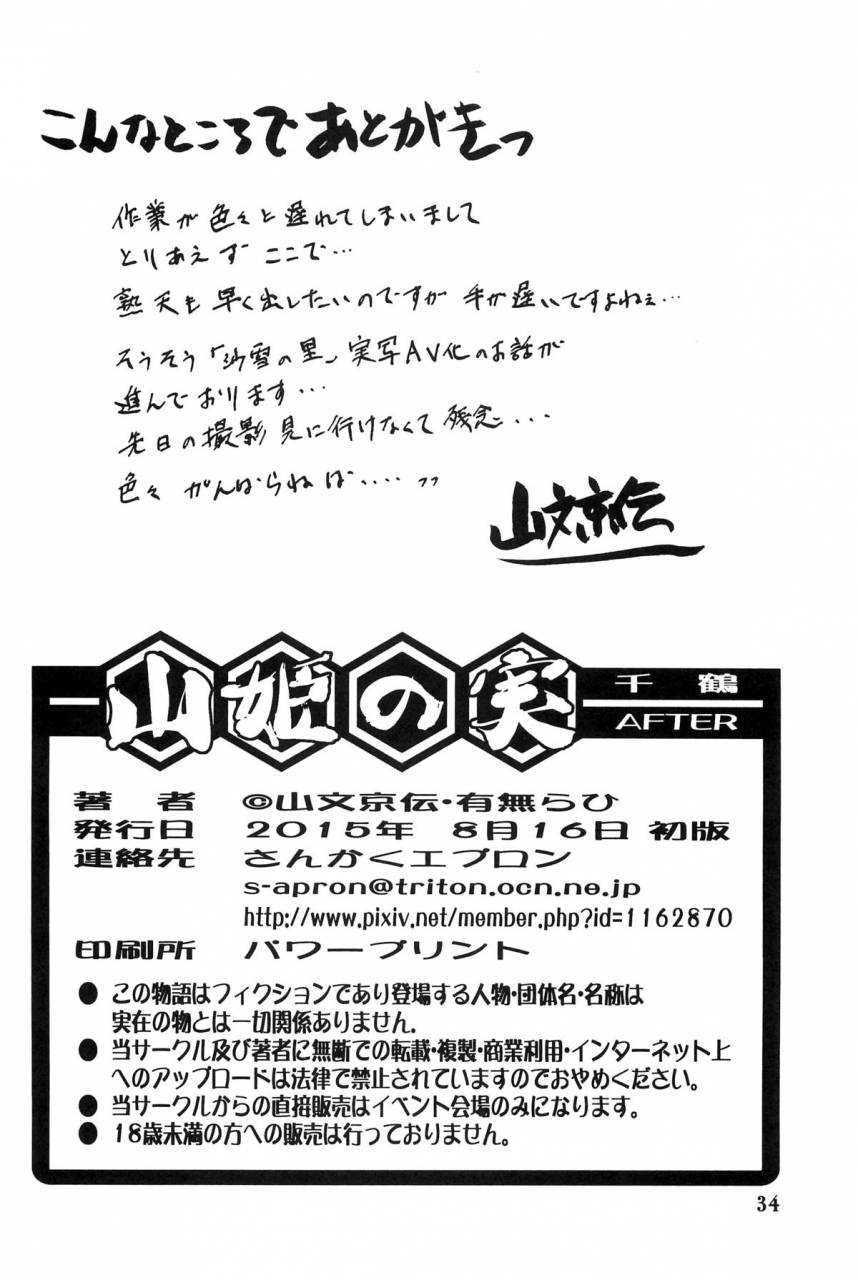 こんなところであとがきっ
作業が色々と遅れてしまいまして
とりあえず ここで…
熟天も早く出したいのですが 手が遅いですよねぇ…
そうそう「沙雪の里」実写AV化のお話が
進んでおります…
先日の撮影見に行けなくて残念…
色々 がんばらねば‥‥ッッ
山文京伝
山姫の実
千鶴
AFTER
著者 ©山文京伝・有無らひ
発行日 2015年 8月16日 初版
連絡先 さんかくエプロン
s-apron@triton.ocn.ne.jp
http://www.pixiv.net/member.php?id=1162870
印刷所 パワープリント
● この物語はフィクションであり登場する人物・団体名・名称は
実在の物とは一切関係ありません.
● 当サークル及び著者に無断での転載・複製・商業利用・インターネット上
へのアップロードは法律で禁止されていますのでおやめください。
● 当サークルからの直接販売はイベント会場のみになります。
● 18歳未満の方への販売は行っておりません。
34